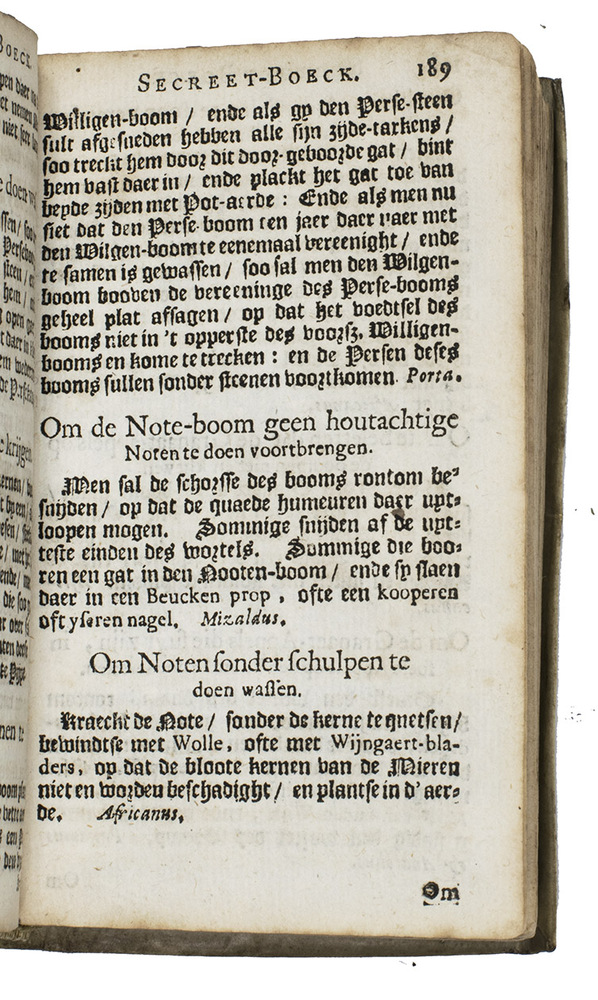 SECREET-BOECK. 189
Willigen-boom / ende als gy den Perse-steen
sult afgesneden hebben alle sijn zijde-tackens /
soo treckt hem door dit door-geboorde gat / bint
hem vast daer in / ende plackt het gat toe van
beyde zijden met Pot-aerde : Ende als men nu
siet dat den Perse-boom een jaer daer naer met
den Wilgen-boom te eenemaal vereenight / ende
te samen is gewassen / soo sal men den Wilgen-
boom booven de vereeninge des Perse-booms
geheel plat afsagen / op dat het voedtsel des
booms niet in 't opperste des voorsz. Willigen-
booms en kome te trecken : en de Persen deses
booms sullen sonder steenen voortkomen. Porta.
Om de Note-boom geen houtachtige
Noten te doen voortbrengen.
Men sal de schorsse des booms rontom be-
snijden / op dat de quaede humeuren daer uyt-
loopen mogen. Sommige snijden af de uyt-
teste einden des wortels. Sommige die boo-
ren een gat in den Nooten-boom / ende sy slaen
daer in een Beucken prop, ofte een kooperen
oft yseren nagel. Mizaldus.
Om Noten sonder schulpen te
doen wassen.
Kraeckt de Note / sonder de kerne te quetsen /
bewindtse met Wolle, ofte met Wijngaert-bla-
ders, op dat de bloote kernen van de Mieren
niet en worden beschadight / en plantse in d'aer-
de. Africanus.
Om